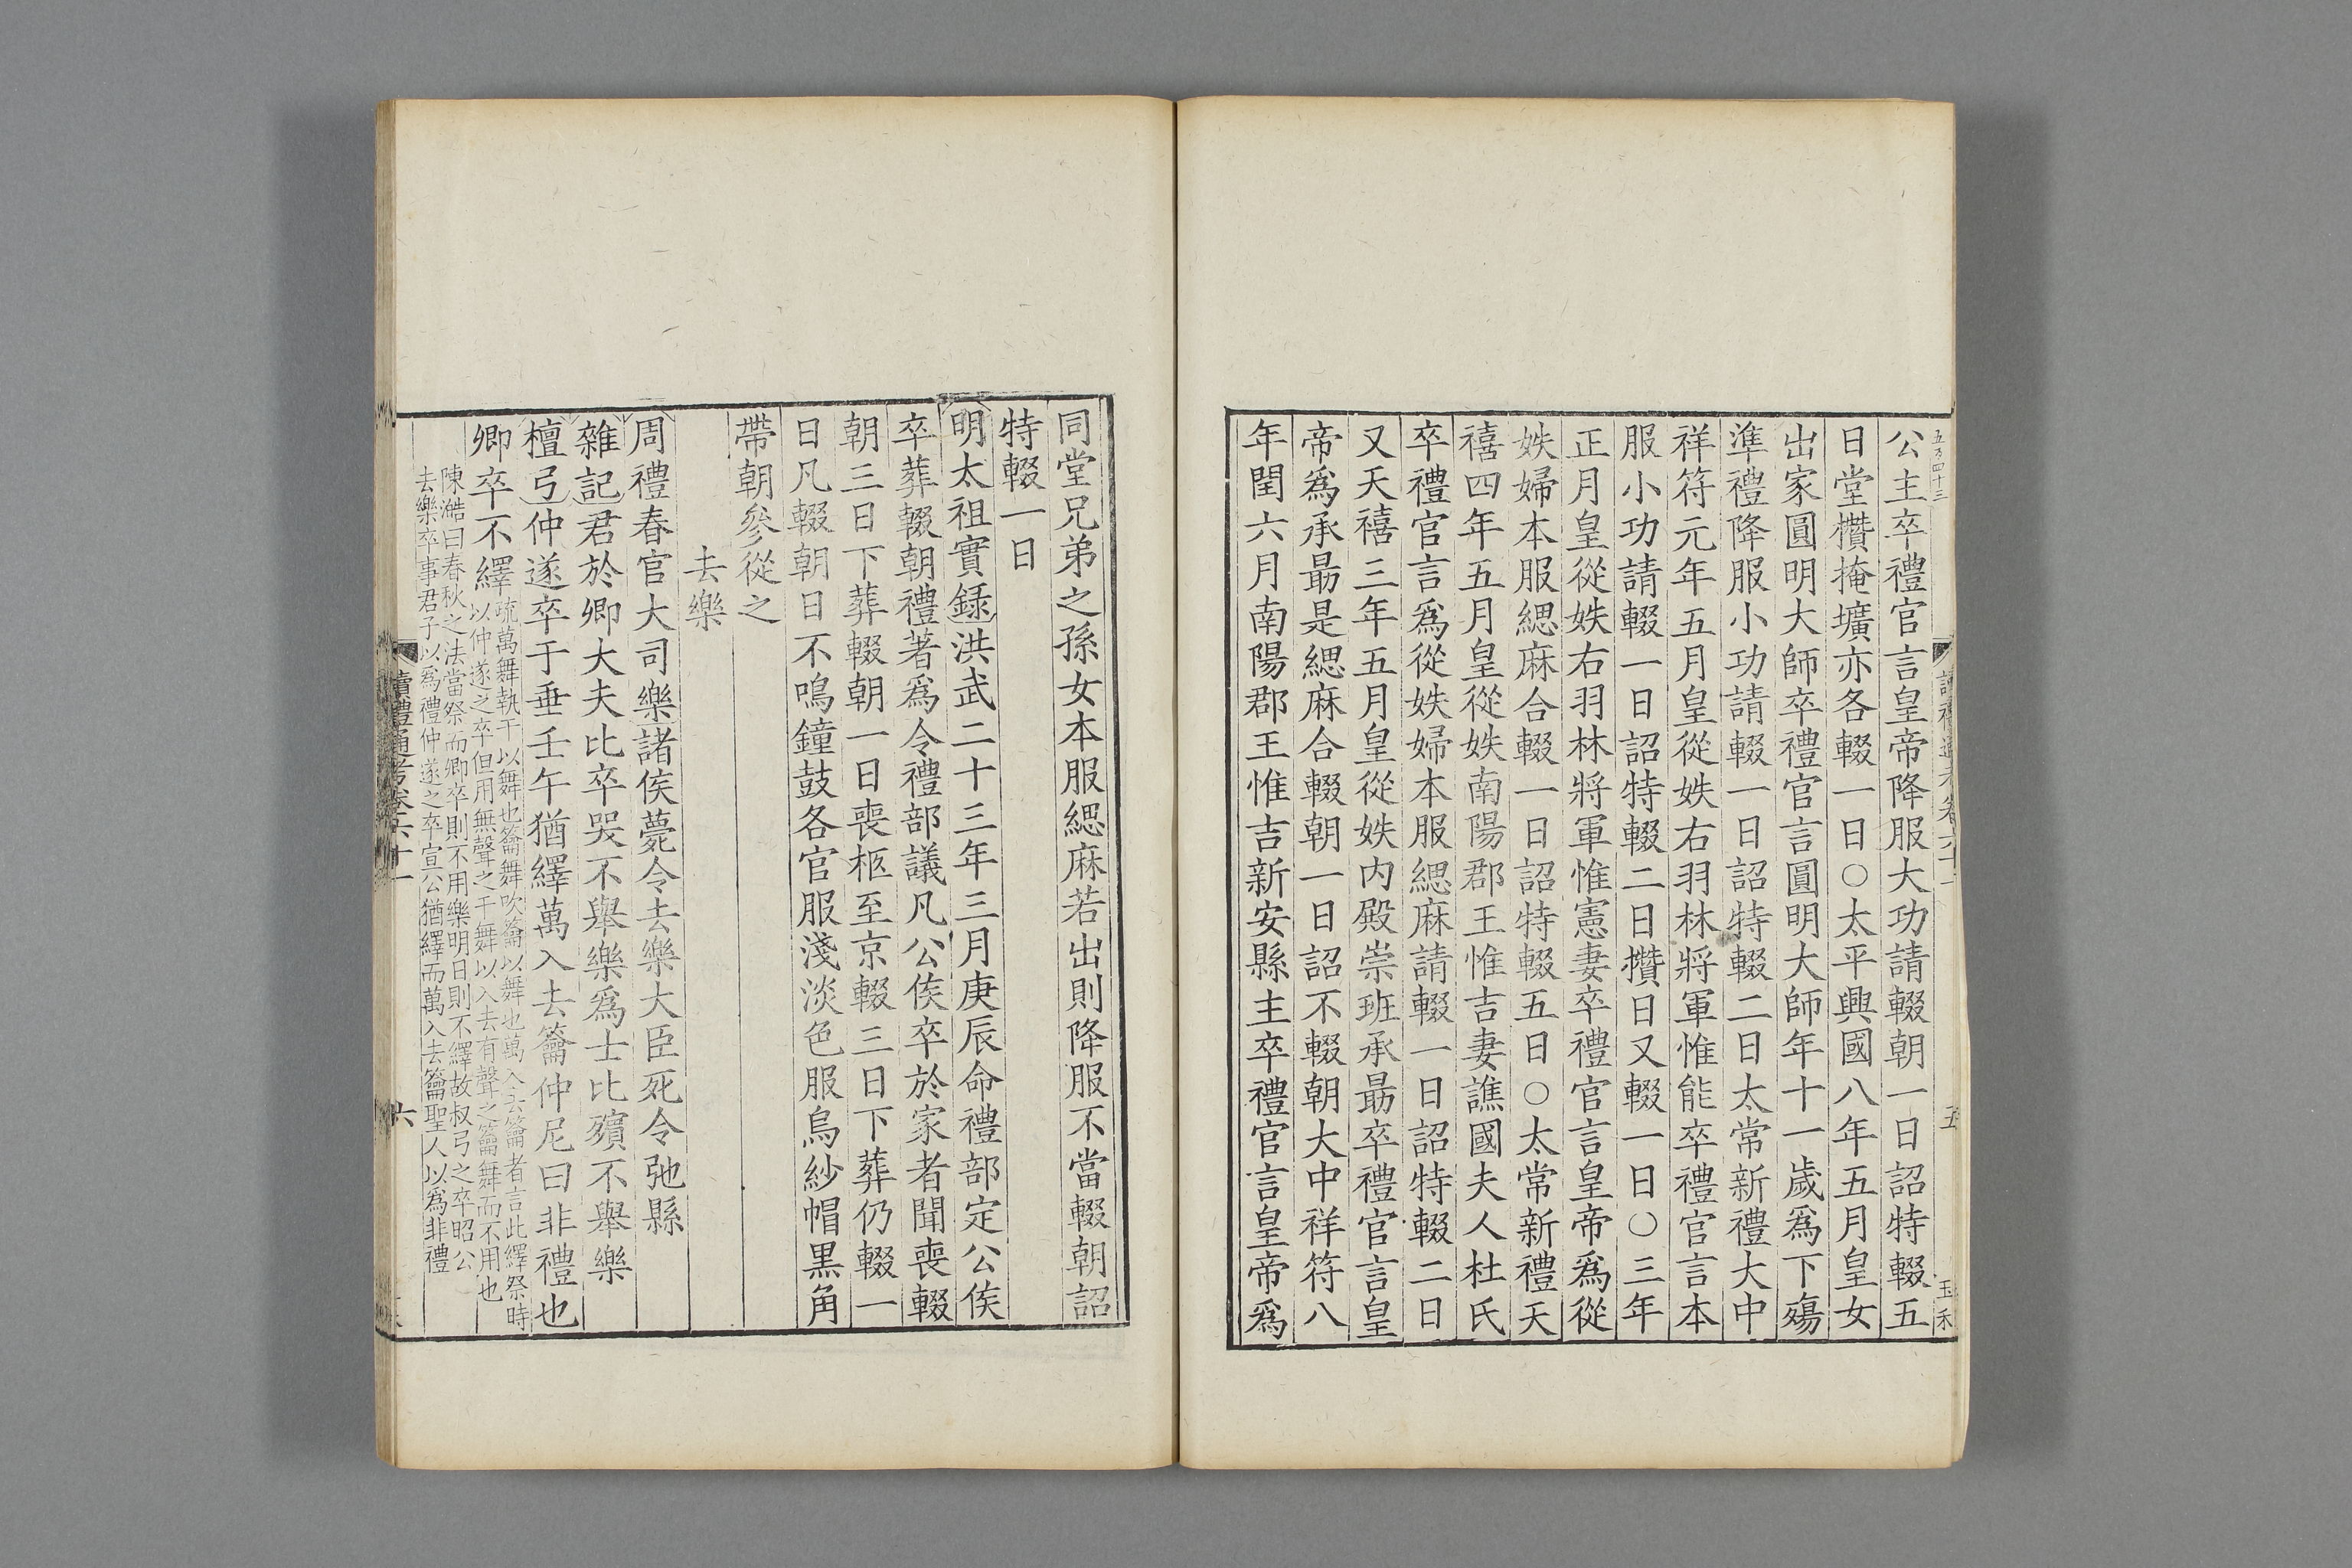 公主卒禮官言皇帝降服大功請輟朝一日詔特輟五
日堂攢掩壙亦各輟一日○太平興國八年五月皇女
出家圓明大師卒禮官言圓明大師年十一歲爲下殤
準禮降服小功請輟一日詔特輟二日太常新禮大中
祥符元年五月皇從姪右羽林將軍惟能卒禮官言本
服小功請輟一日詔特輟二日攢日又輟一日○三年
正月皇從姪右羽林將軍惟憲妻卒禮官言皇帝爲從
姪婦本服緦麻合輟一日詔特輟五日○太常新禮天
禧四年五月皇從姪南陽郡王惟吉妻譙國夫人杜氏
卒禮官言爲從姪婦本服緦麻請輟一日詔特輟二日
又天禧三年五月皇從姪内殿崇班承朂卒禮官言皇
帝爲承朂是緦麻合輟朝一日詔不輟朝大中祥符八
年閏六月南陽郡王惟吉新安縣主卒禮官言皇帝爲
同堂兄弟之孫女本服緦麻若出則降服不當輟朝詔
特輟一日
明太祖實錄洪武二十三年三月庚辰命禮部定公侯
卒葬輟朝禮著爲令禮部議凡公侯卒於家者聞喪輟
朝三日下葬輟朝一日喪柩至京輟三日下葬仍輟一
日凡輟朝日不鳴鐘鼓各官服淺淡色服烏紗帽黑角
帶朝參從之
去樂
周禮春官大司樂諸侯薨令去樂大臣死令弛縣
雜記君於卿大夫比卒哭不舉樂爲士比殯不舉樂
檀弓仲遂卒于垂壬午猶繹萬入去籥仲尼曰非禮也
卿卒不繹
疏萬舞執干以舞也籥舞吹籥以舞也萬入去籥者言此繹祭時
以仲遂之卒但用無聲之干舞以入去有聲之籥舞而不用也
陳澔曰春秋之法當祭而卿卒則不用樂明日則不繹故叔弓之卒昭公
去樂卒事君子以爲禮仲遂之卒宣公猶繹而萬入去籥聖人以爲非禮
讀禮通考卷六十一
六